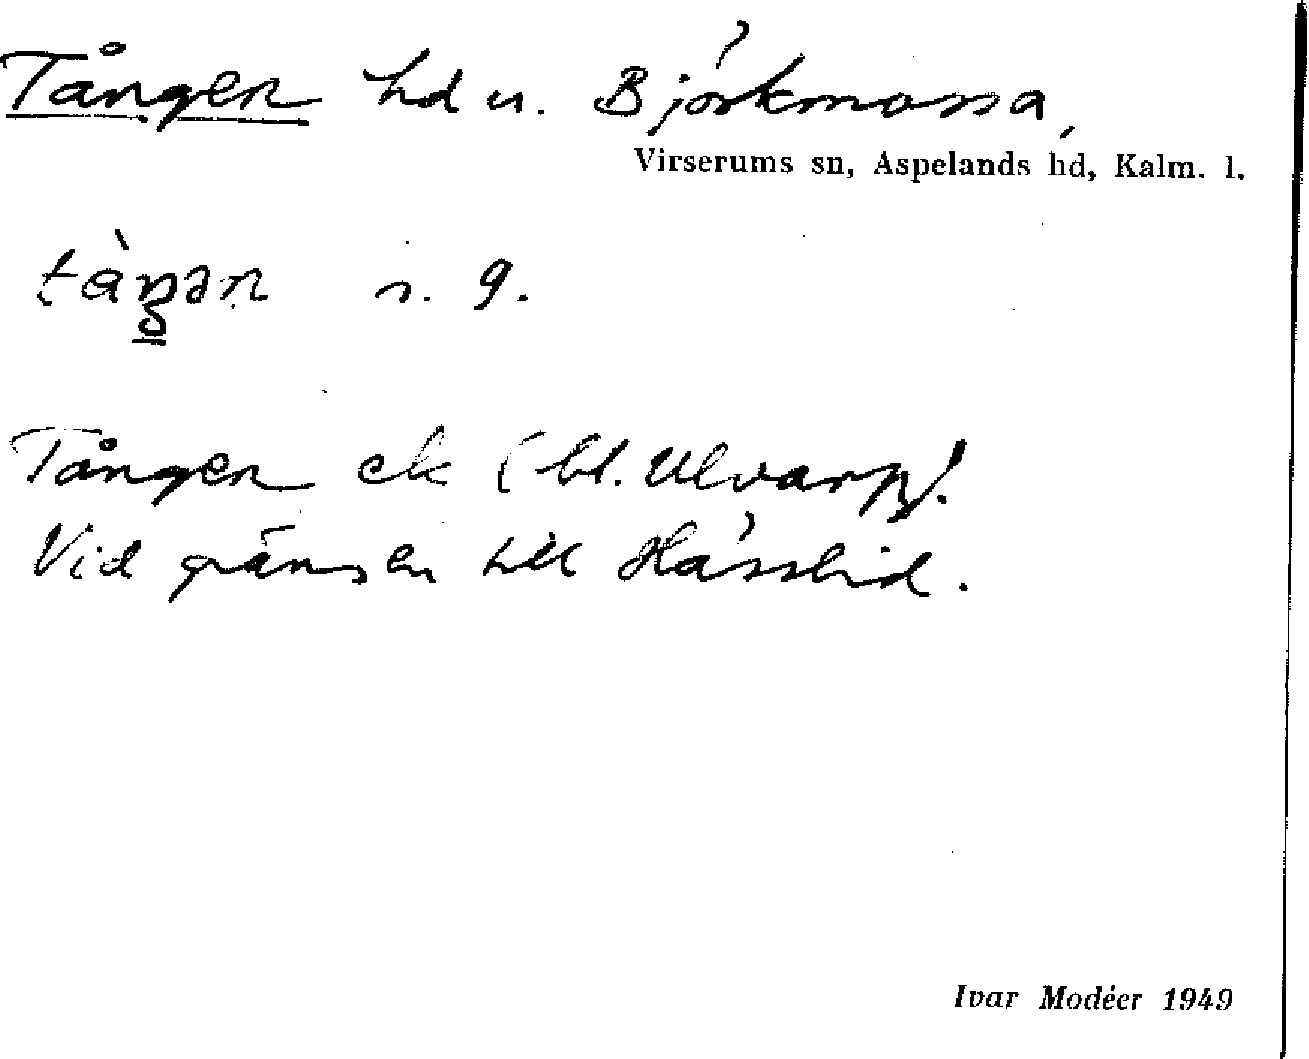 Tången hd u. Björkmossa,
Virserums sn, Aspelands hd, Kalm. l.
tàŋən s. g.
Tången ek (bl. Ulvarp)!
Vid gränsen till Hässlid.
Ivar Modéer 1949